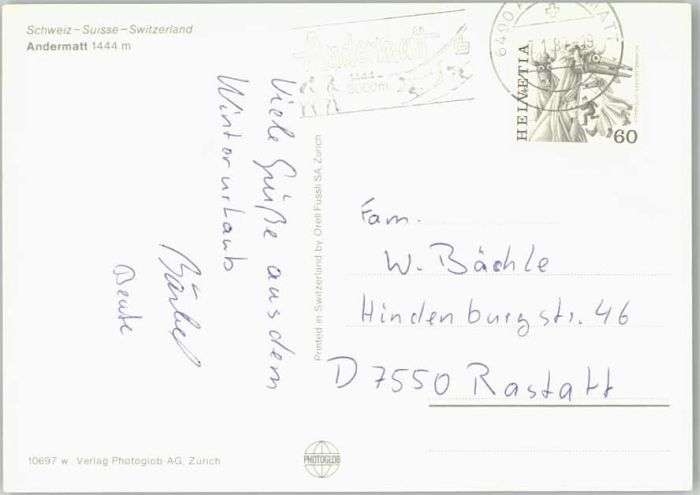 Schweiz – Suisse – Switzerland
Andermatt 1444 m
Viele Grüße aus dem
Winterurlaub
Bärbel
Beate
Printed in Switzerland by Orell Füssli SA, Zürich
Andermatt
1444
3000m
6490
HELVETIA
60
Fam.
W. Bächle
Hindenburgstr. 46
D 7550 Rastatt
10697 w. Verlag Photoglob AG, Zürich
PHOTOGLOB